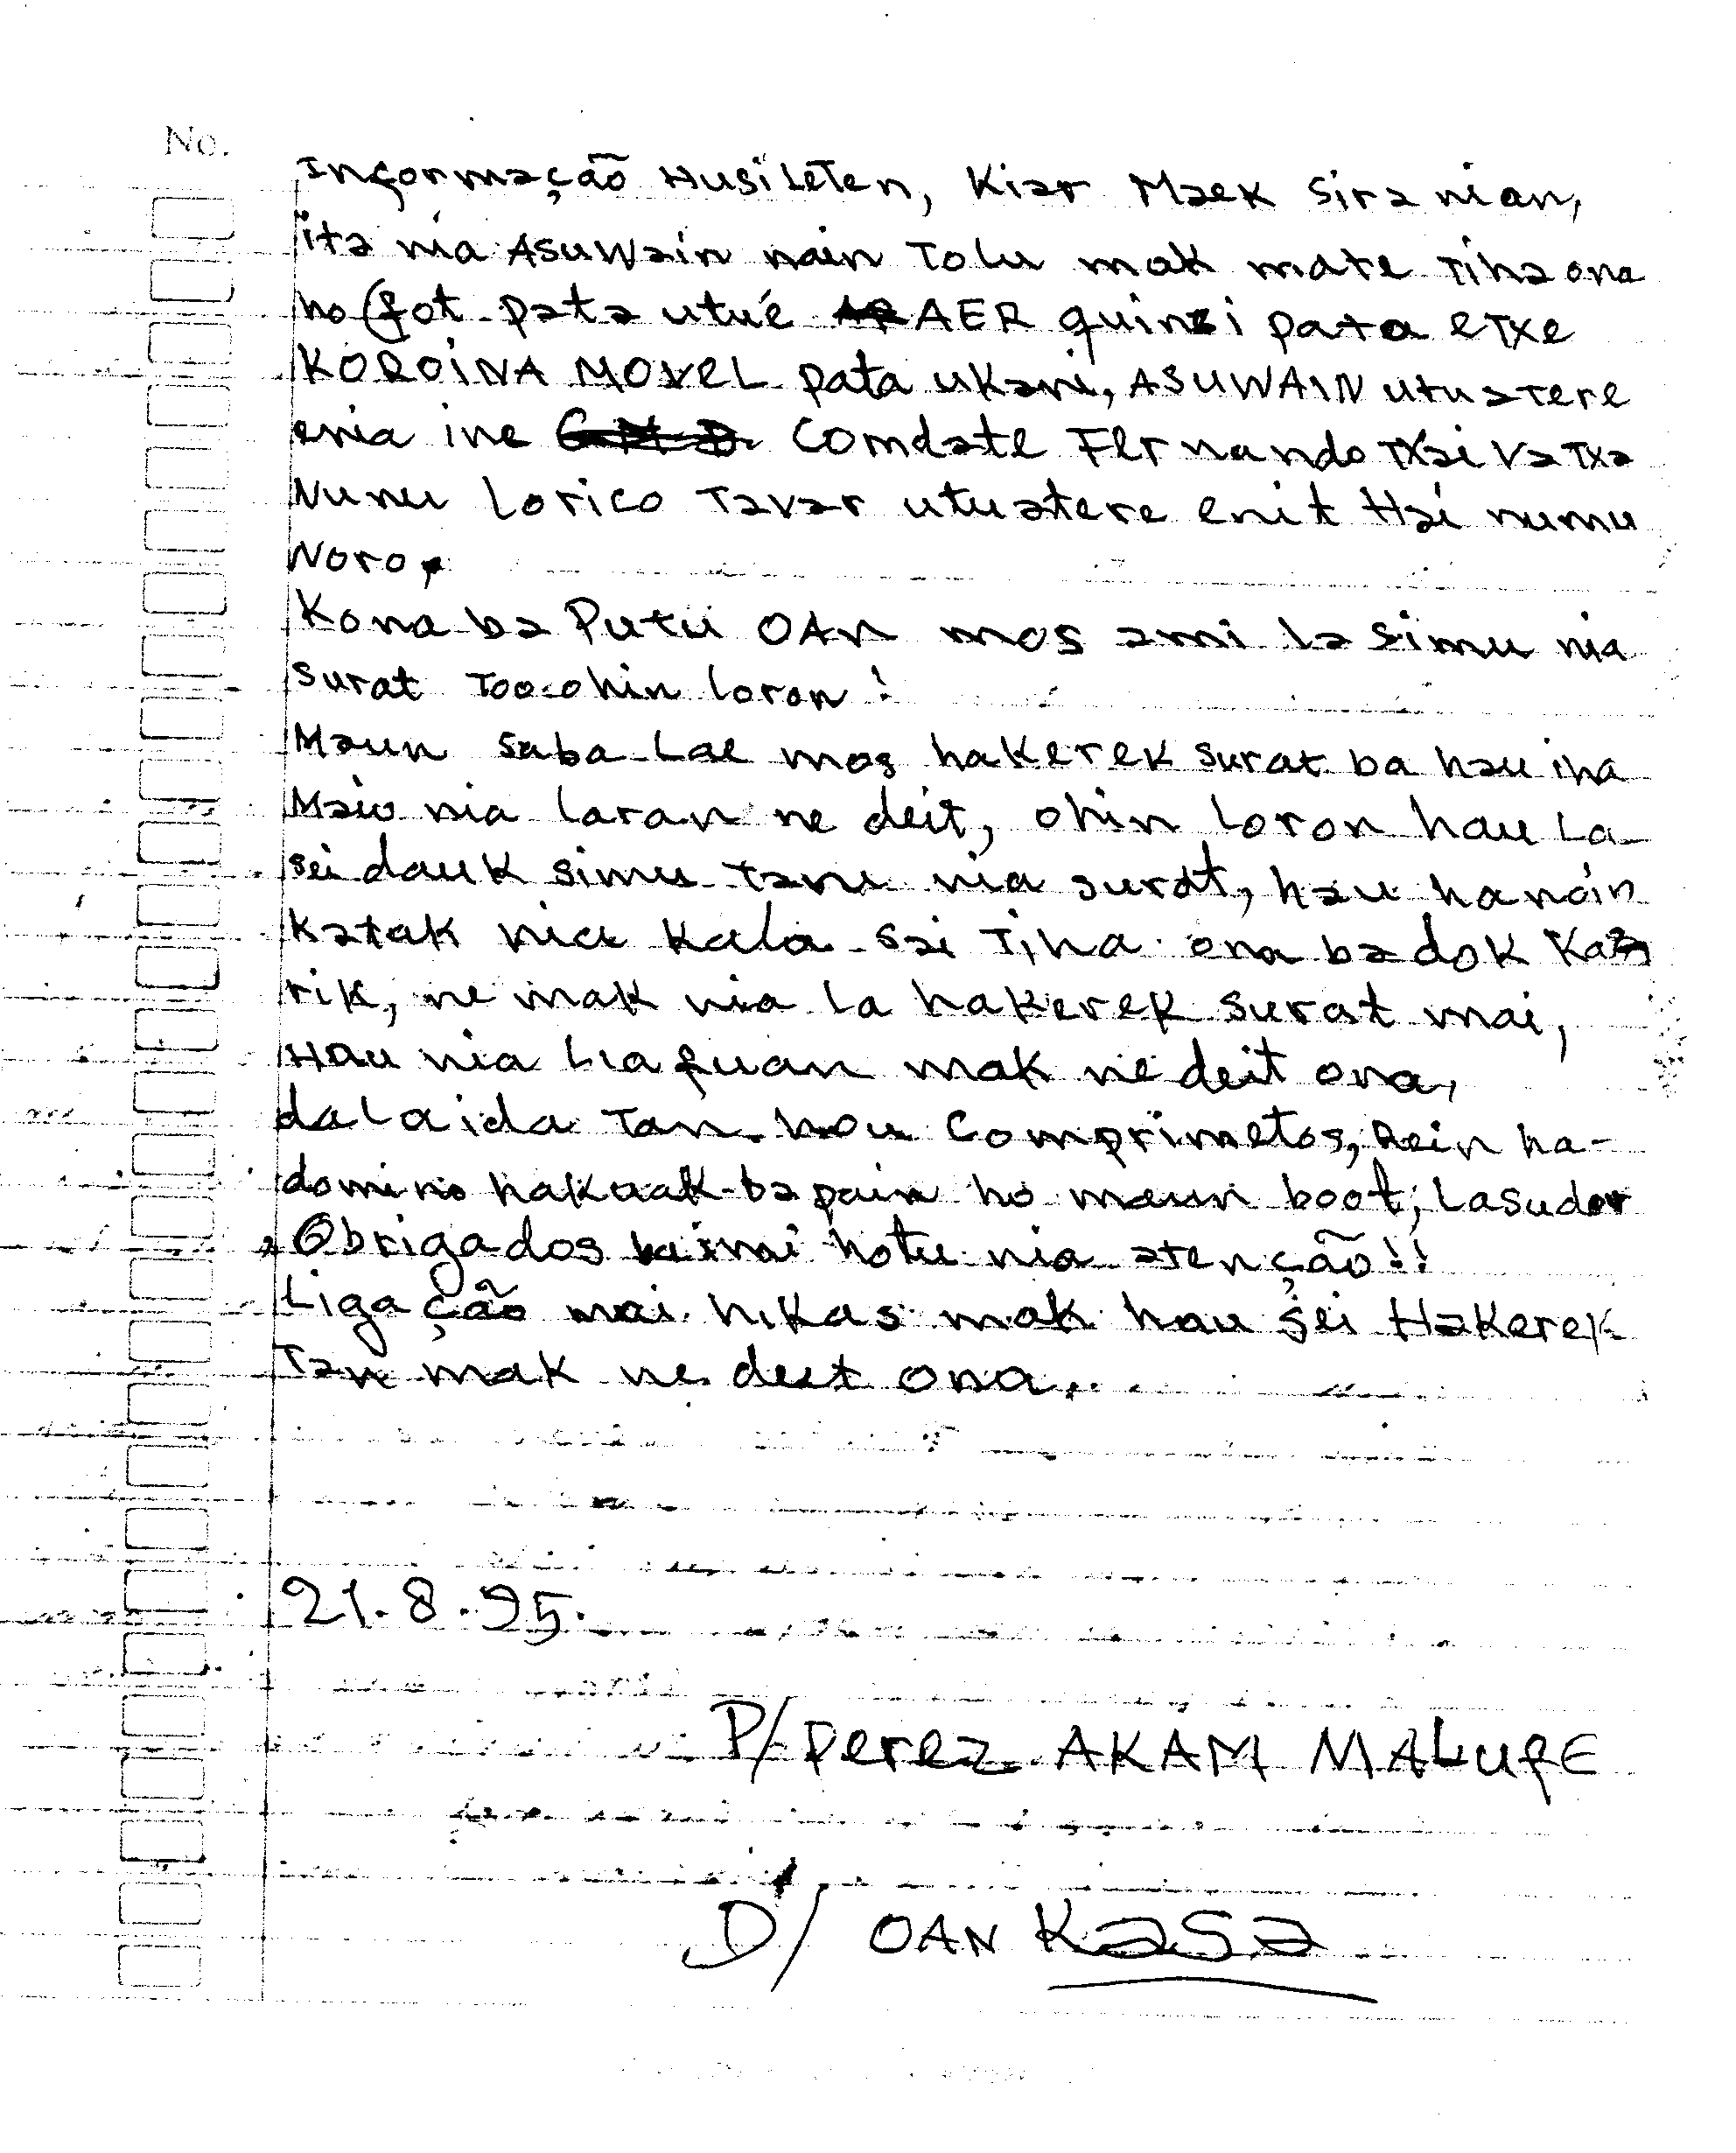 No.
Informação Husi Leten, Kiar Maek sira nian,
ita nia Asuwain nain Tolu mak mate Tiha ona
ho (fot pata utué AER quinzi pata etxe
KOROINA MOVEL pata ukani, ASUWAIN utuatere
enia ine Comdate Fernando Txai Va Txa
Nunu Lorico Tavar utuatere enit Hai numu
Noro,
Kona ba Putu OAN mos ami la simu nia
surat Too ohin loron!
Maun saba Lae mos hakerek surat ba hau iha
Maio nia laran ne deit, ohin loron hau La
sei dauk simu tanu nia surat, hau hanoin
Katak nia Kala sai Tiha ona ba dok Ka
rik, ne mak nia la hakerek surat mai,
Hau nia Lia fuan mak ne deit ona,
dala ida Tan hou Comprimetos, Rein ha-
domino hakuak ba pain ho maun boot, Lasudor
Obrigados mai hotu nia atenção!!
Ligação mai hikas mak hau sei Hakerek
Tan mak ne deit ona..
21.8.95.
P/ Perez AKAM MALUfE
D/ OAN Kasa